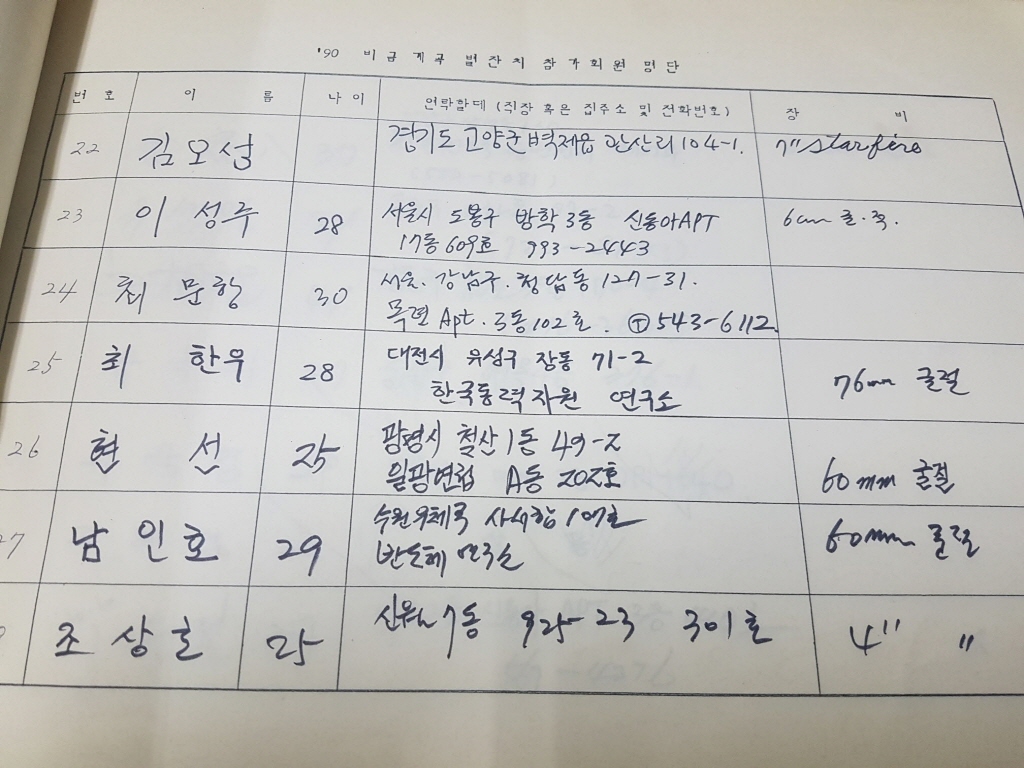 '90 비금계곡 별잔치 참가회원 명단
번 호 이 름 나 이 연락할데 (직장 혹은 집주소 및 전화번호) 장 비
22 김오성 경기도 고양군 벽제읍 관산리 104-1. 7" starfire
23 이 성주 28 서울시 도봉구 방학3동 신동아APT 6cm 굴·적.
17동 609호 993-2443
24 최 문항 30 서울. 강남구. 청담동 127-31.
목련 Apt. 3동 102호. Ⓣ 543-6112.
25 최 한우 28 대전시 유성구 장동 71-2 76mm 굴절
한국동력자원 연구소
26 현 선 25 광명시 철산1동 49-2 60mm 굴절
월광연립 A동 202호
27 남인호 29 수원우체국 사서함 60mm 굴절
반도체 연구소
조상호 25 7동 925-23 301호 4" "